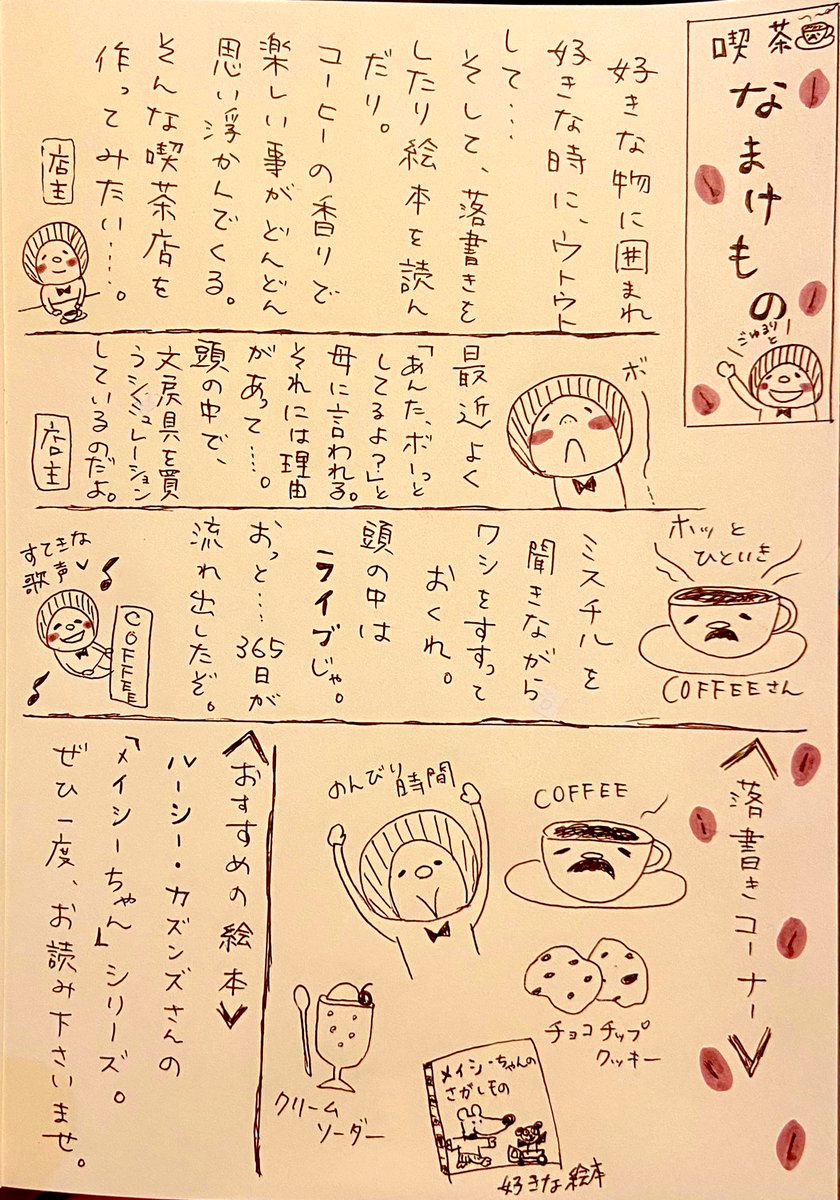 喫茶
なまけもの
じゅるりと
好きな物に囲まれ
好きな時に、ウトウト
して…
そして、落書きを
したり絵本を読ん
だり。
コーヒーの香りで
楽しい事がどんどん
思い浮かんでくる。
そんな喫茶店を
作ってみたい……。
店主
ボー
最近よく
「あんた、ボーっと
してるよ?」と
母に言われる。
それには理由
があって…。
頭の中で、
文房具を買
うシミュレーション
しているのだよ。
店主
ホッと
ひといき
COFFEEさん
ミスチルを
聞きながら
ワシをすすって
おくれ。
頭の中は
ライブじゃ。
おっと…365日が
流れ出したぞ。
すてきな
歌声
COFFEE
落書きコーナー
COFFEE
のんびり時間
チョコチップ
クッキー
クリーム
ソーダー
メイシーちゃんの
さがしもの
好きな絵本
おすすめの絵本
ルーシー・カズンズさんの
「メイシーちゃん」シリーズ。
ぜひ一度、お読み下さいませ。